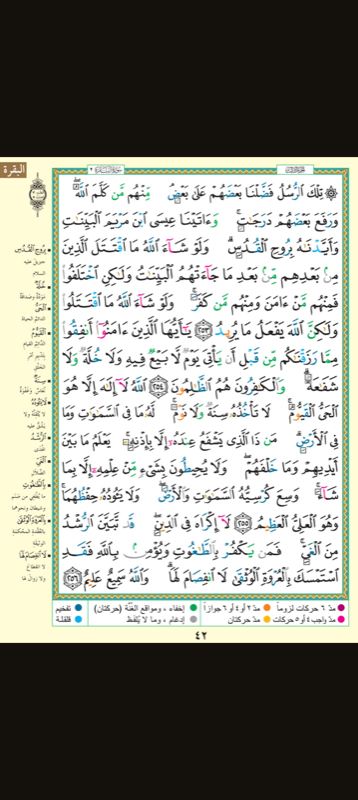 البقرة
۞ تِلْكَ ٱلرُّسُلُ فَضَّلْنَا بَعْضَهُمْ عَلَىٰ بَعْضٍ مِّنْهُم مَّن كَلَّمَ ٱللَّهُ
وَرَفَعَ بَعْضَهُمْ دَرَجَٰتٍ وَءَاتَيْنَا عِيسَى ٱبْنَ مَرْيَمَ ٱلْبَيِّنَٰتِ
وَأَيَّدْنَٰهُ بِرُوحِ ٱلْقُدُسِ وَلَوْ شَآءَ ٱللَّهُ مَا ٱقْتَتَلَ ٱلَّذِينَ
مِنۢ بَعْدِهِم مِّنۢ بَعْدِ مَا جَآءَتْهُمُ ٱلْبَيِّنَٰتُ وَلَٰكِنِ ٱخْتَلَفُوا۟
فَمِنْهُم مَّنْ ءَامَنَ وَمِنْهُم مَّن كَفَرَ وَلَوْ شَآءَ ٱللَّهُ مَا ٱقْتَتَلُوا۟
وَلَٰكِنَّ ٱللَّهَ يَفْعَلُ مَا يُرِيدُ ٢٥٣ يَٰٓأَيُّهَا ٱلَّذِينَ ءَامَنُوٓا۟ أَنفِقُوا۟
مِمَّا رَزَقْنَٰكُم مِّن قَبْلِ أَن يَأْتِىَ يَوْمٌ لَّا بَيْعٌ فِيهِ وَلَا خُلَّةٌ وَلَا
شَفَٰعَةٌ وَٱلْكَٰفِرُونَ هُمُ ٱلظَّٰلِمُونَ ٢٥٤ ٱللَّهُ لَآ إِلَٰهَ إِلَّا هُوَ
ٱلْحَىُّ ٱلْقَيُّومُ لَا تَأْخُذُهُۥ سِنَةٌ وَلَا نَوْمٌ لَّهُۥ مَا فِى ٱلسَّمَٰوَٰتِ وَمَا
فِى ٱلْأَرْضِ مَن ذَا ٱلَّذِى يَشْفَعُ عِندَهُۥٓ إِلَّا بِإِذْنِهِۦ يَعْلَمُ مَا بَيْنَ
أَيْدِيهِمْ وَمَا خَلْفَهُمْ وَلَا يُحِيطُونَ بِشَىْءٍ مِّنْ عِلْمِهِۦٓ إِلَّا بِمَا
شَآءَ وَسِعَ كُرْسِيُّهُ ٱلسَّمَٰوَٰتِ وَٱلْأَرْضَ وَلَا يَـُٔودُهُۥ حِفْظُهُمَا
وَهُوَ ٱلْعَلِىُّ ٱلْعَظِيمُ ٢٥٥ لَآ إِكْرَاهَ فِى ٱلدِّينِ قَد تَّبَيَّنَ ٱلرُّشْدُ
مِنَ ٱلْغَىِّ فَمَن يَكْفُرْ بِٱلطَّٰغُوتِ وَيُؤْمِنۢ بِٱللَّهِ فَقَدِ
ٱسْتَمْسَكَ بِٱلْعُرْوَةِ ٱلْوُثْقَىٰ لَا ٱنفِصَامَ لَهَا وَٱللَّهُ سَمِيعٌ عَلِيمٌ ٢٥٦
بِرُوحِ الْقُدُسِ
جبريل عليه
السلام
خُلَّةٌ
مودّة وصداقة
الْحَيُّ
الدائم الحياة
الْقَيُّومُ
الدائم القيام
سِنَةٌ
لَا يَئُودُهُ
الرُّشْدُ
الهدى
الْغَيِّ
الضلال
بِالطَّاغُوتِ
بِالْعُرْوَةِ الْوُثْقَى
لَا انْفِصَامَ لَهَا
لا انقطاع
ولا زوال لها
مدّ ٦ حركات لزوماً مدّ ٢ أو ٤ أو ٦ جوازاً إخفاء ، ومواقع الغُنَّة (حركتان) تفخيم
مدّ واجب ٤ أو ٥ حركات مدّ حركتان إدغام ، وما لا يُلفظ قلقلة
٤٢